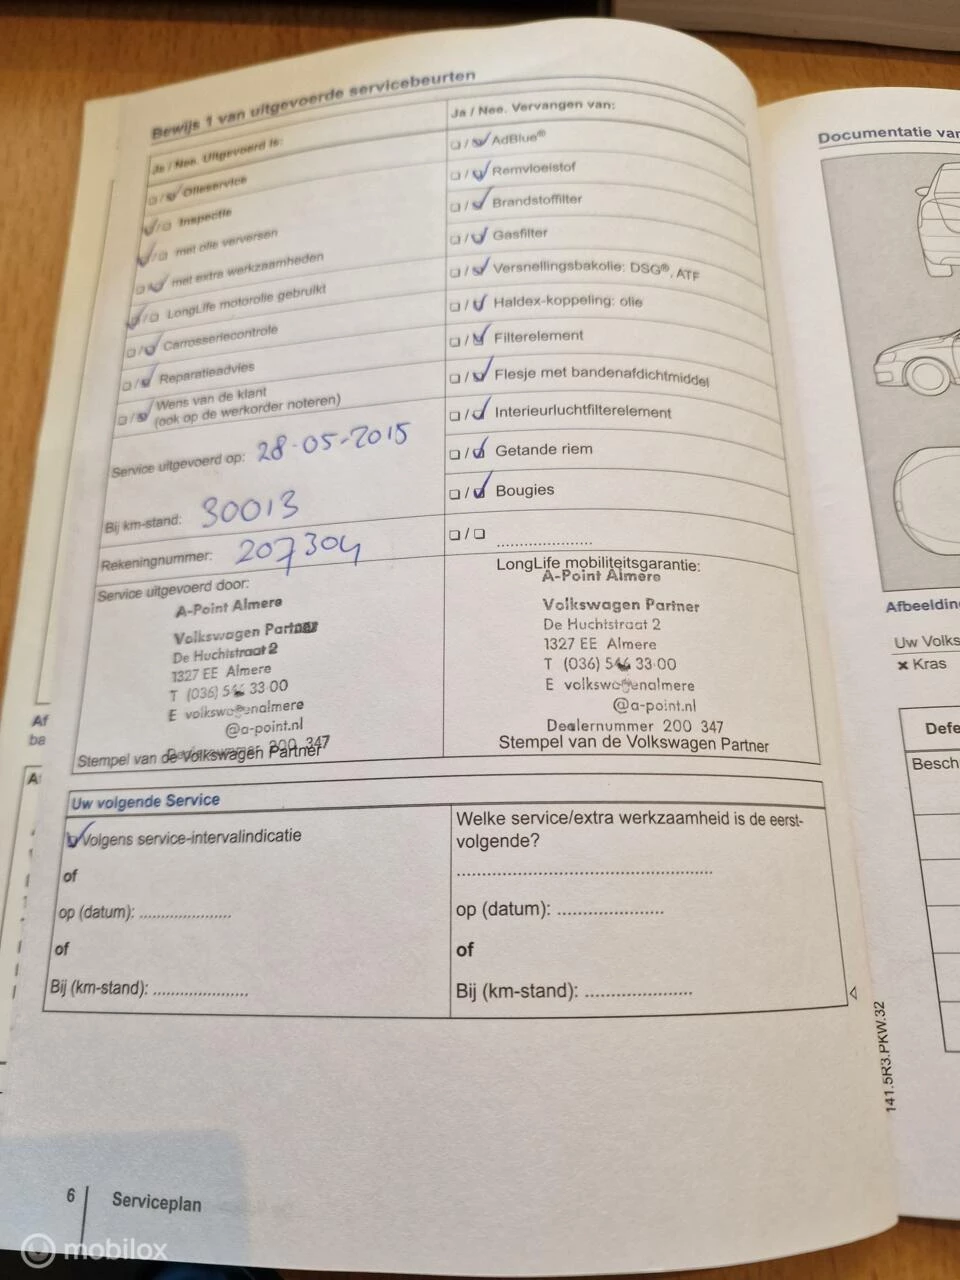 Bewijs 1 van uitgevoerde servicebeurten
Ja / Nee. Uitgevoerd is:
/ Olieservice
/ Inspectie
/ met olie verversen
/ met extra werkzaamheden
/ LongLife motorolie gebruikt
/ Carrosseriecontrole
/ Reparatieadvies
/ Wens van de klant
(ook op de werkorder noteren)
Service uitgevoerd op: 28-05-2015
Bij km-stand: 30013
Rekeningnummer: 207304
Service uitgevoerd door:
A-Point Almere
Volkswagen Partner
De Huchtstraat 2
1327 EE Almere
T (036) 546 33 00
E volkswagenalmere
@a-point.nl
Dealernummer 200 347
Stempel van de Volkswagen Partner
Ja / Nee. Vervangen van:
/ AdBlue®
/ Remvloeistof
/ Brandstoffilter
/ Gasfilter
/ Versnellingsbakolie: DSG®, ATF
/ Haldex-koppeling: olie
/ Filterelement
/ Flesje met bandenafdichtmiddel
/ Interieurluchtfilterelement
/ Getande riem
/ Bougies
/ ....................
LongLife mobiliteitsgarantie:
A-Point Almere
Volkswagen Partner
De Huchtstraat 2
1327 EE Almere
T (036) 546 33 00
E volkswagenalmere
@a-point.nl
Dealernummer 200 347
Stempel van de Volkswagen Partner
Uw volgende Service
Volgens service-intervalindicatie
of
op (datum): ....................
of
Bij (km-stand): ....................
Welke service/extra werkzaamheid is de eerst-
volgende?
..................................................
op (datum): ....................
of
Bij (km-stand): ....................
141.5R3.PKW.32
6 Serviceplan
Documentatie van
Afbeelding
Uw Volks
× Kras
Defe
Besch
Af
ba
A
mobilox